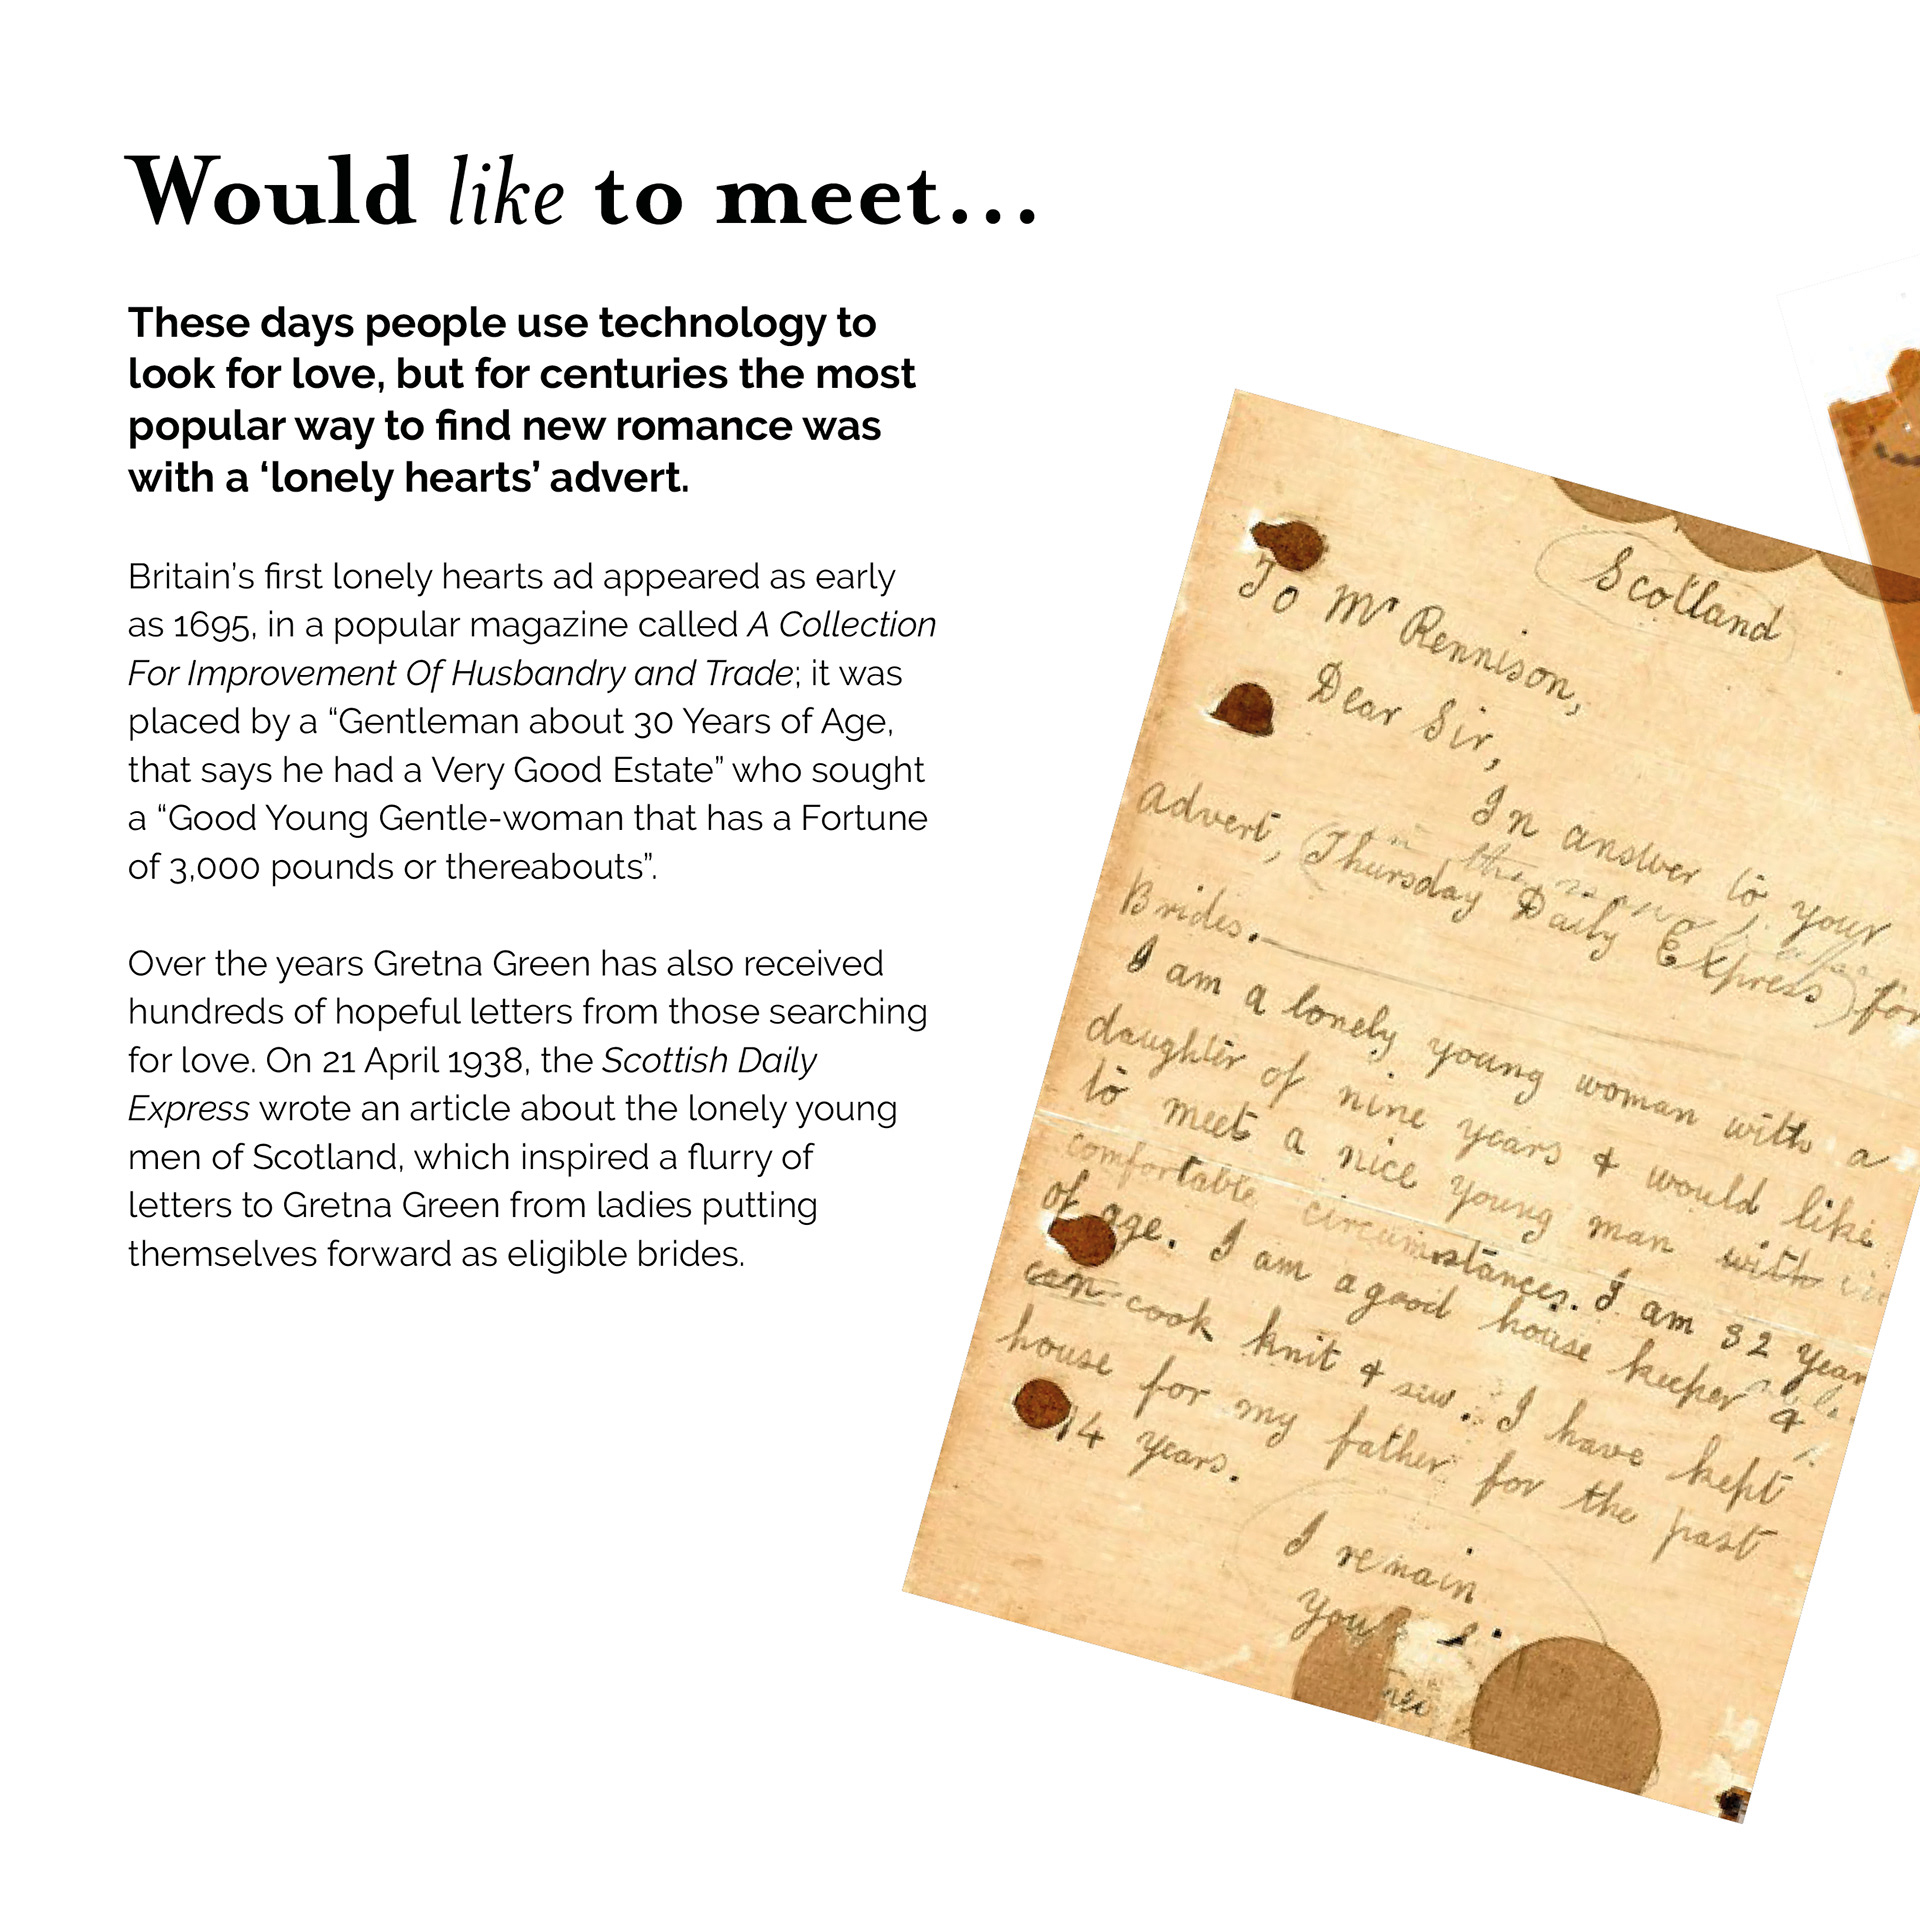 Would like to meet...
These days people use technology to
look for love, but for centuries the most
popular way to find new romance was
with a ‘lonely hearts’ advert.
Britain’s first lonely hearts ad appeared as early
as 1695, in a popular magazine called A Collection
For Improvement Of Husbandry and Trade; it was
placed by a “Gentleman about 30 Years of Age,
that says he had a Very Good Estate” who sought
a “Good Young Gentle-woman that has a Fortune
of 3,000 pounds or thereabouts”.
Over the years Gretna Green has also received
hundreds of hopeful letters from those searching
for love. On 21 April 1938, the Scottish Daily
Express wrote an article about the lonely young
men of Scotland, which inspired a flurry of
letters to Gretna Green from ladies putting
themselves forward as eligible brides.
Scotland
To Mr Rennison,
Dear Sir,
In answer to your
advert, Thursday Daily Express for
Brides.
I am a lonely young woman with a
daughter of nine years & would like
to meet a nice young man with
comfortable circumstances. I am 32 year
of age. I am a good house keeper &
can cook knit & sew. I have kept
house for my father for the past
14 years.
I remain